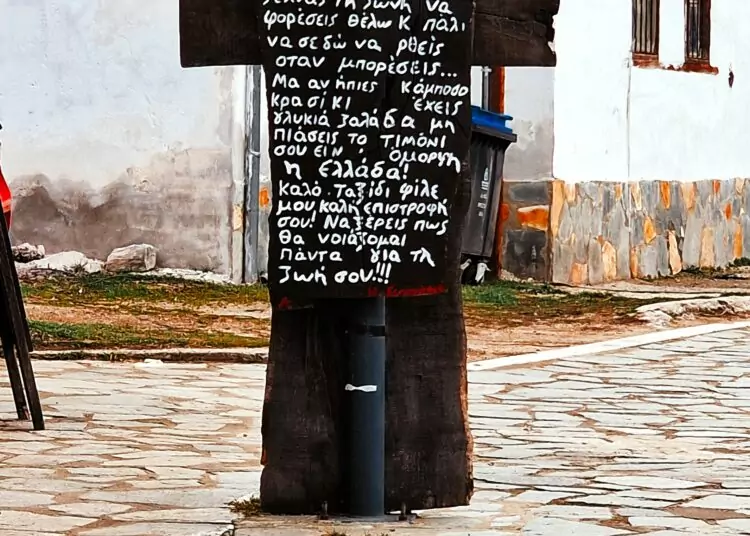 τη ζωή να
φορέσεις θέλω κ πάλι
να σε δώ να ρθείς
οταν μπορέσεις...
Μα αν ήπιες κάμποσο
κρασί κι έχεις
γλυκιά ζαλάδα μη
πιάσεις το τιμόνι
σου είν' όμορφη
η Ελλάδα!
Καλό ταξίδι φίλε
μου καλή επιστροφή
σου! Να ξέρεις πως
θα νοιάζομαι
πάντα για τη
ζωή σου!!!